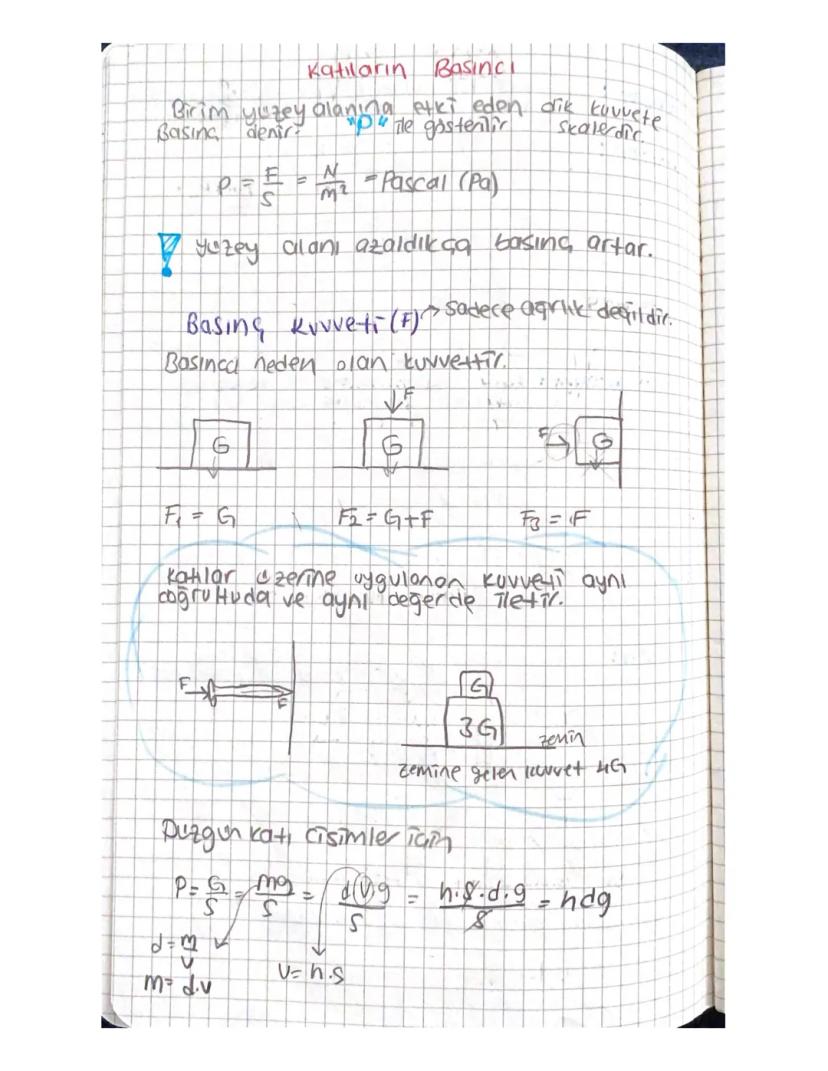 Katıların Basıncı
Birim yüzey alanına etki eden dik kuvvete
Basınç denir. "P" ile gösterilir skalerdir.
P = F/S = N/m² = Pascal (Pa)
yüzey alanı azaldıkça basınç artar.
Basınç kuvveti (F) → Sadece ağırlık değildir.
Basıncı neden olan kuvvettir.
F
G G F G
F₁ = G F₂ = G+F F₃ = F
Katılar üzerine uygulanan kuvveti aynı
doğrultuda ve aynı değerde iletir.
F F
G
3G
zemin
zemine gelen kuvvet 4G
Düzgün katı cisimler için
P = G/S = mg/S = dVg/S = h.S.d.g/S = hdg
d = m/V
V = h.S
m = d.v